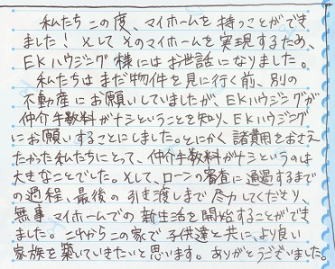 私たちこの度、マイホームを持つことができ
ました！そしてそのマイホームを実現するため、
EKハウジング様にはお世話になりました。
私たちはまだ物件を見に行く前、別の
不動産にお願いしていましたが、EKハウジングが
仲介手数料がナシということを知り、EKハウジング
にお願いすることにしました。とにかく諸費用をおさえ
たかった私たちにとって、仲介手数料がナシというのは
大きなことでした。そして、ローンの審査に通過するまで
の過程、最後の引き渡しまで尽力してくださり、
無事マイホームでの新生活を開始することができ
ました。これからこの家で子供達と共に、より良い
家族を築いていきたいと思います。ありがとうございました。